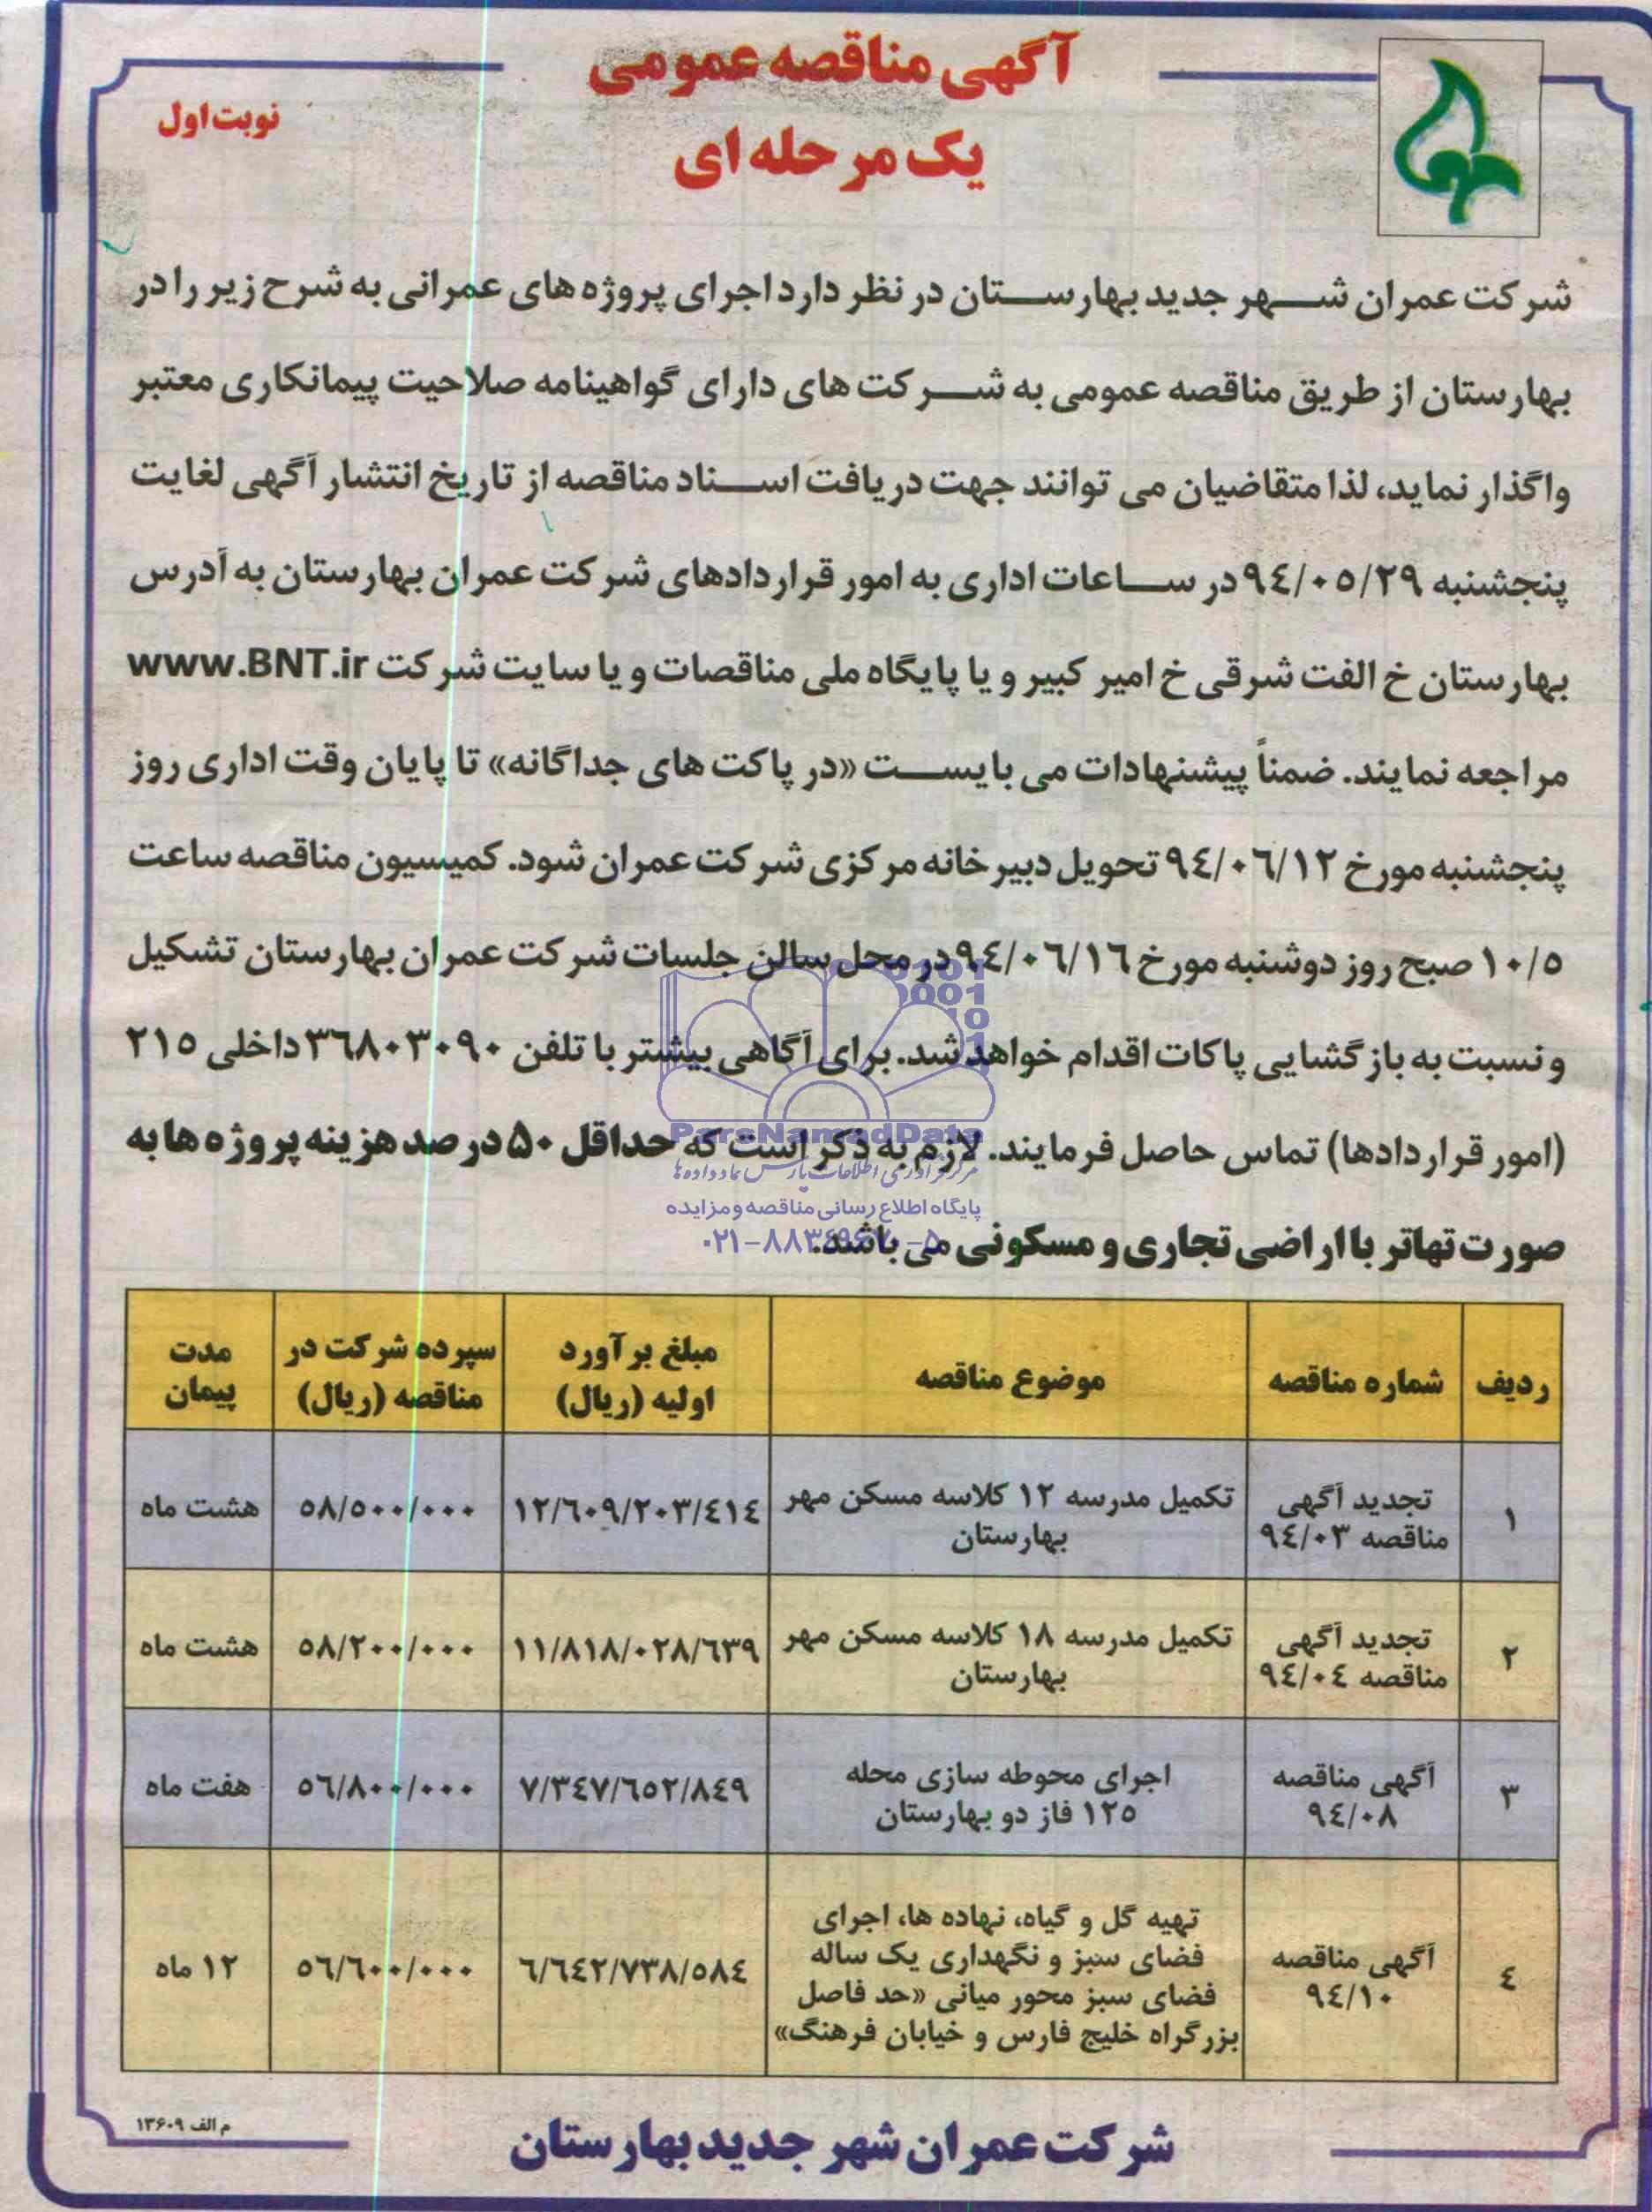 آگهی مناقصه عمومی
یک مرحله ای
نوبت اول
شرکت عمران شهر جدید بهارستان در نظر دارد اجرای پروژه های عمرانی به شرح زیر را در
بهارستان از طریق مناقصه عمومی به شرکت های دارای گواهینامه صلاحیت پیمانکاری معتبر
واگذار نماید، لذا متقاضیان می توانند جهت دریافت اسناد مناقصه از تاریخ انتشار آگهی لغایت
پنجشنبه ۹٤/۰٥/۲۹ در ساعات اداری به امور قراردادهای شرکت عمران بهارستان به آدرس
بهارستان خ الفت شرقی خ امیر کبیر و یا پایگاه ملی مناقصات و یا سایت شرکت www.BNT.ir
مراجعه نمایند. ضمناً پیشنهادات می بایست «در پاکت های جداگانه» تا پایان وقت اداری روز
پنجشنبه مورخ ۹٤/۰٦/۱۲ تحویل دبیرخانه مرکزی شرکت عمران شود. کمیسیون مناقصه ساعت
۱۰/٥ صبح روز دوشنبه مورخ ۹٤/۰٦/۱٦ در محل سالن جلسات شرکت عمران بهارستان تشکیل
و نسبت به بازگشایی پاکات اقدام خواهد شد. برای آگاهی بیشتر با تلفن ۳٦۸۰۳۰۹۰ داخلی ۲۱٥
(امور قراردادها) تماس حاصل فرمایند. لازم به ذکر است که حداقل ۵۰ درصد هزینه پروژه ها به
صورت تهاتر با اراضی تجاری و مسکونی می باشد.
ParsNamadData
مرکز فرآوری اطلاعات پارس نماد داده ها
پایگاه اطلاع رسانی مناقصه و مزایده
۰۲۱-۸۸۳۴۹۶۷۰-۵
ردیف شماره مناقصه موضوع مناقصه مبلغ برآورد اولیه (ریال) سپرده شرکت در مناقصه (ریال) مدت پیمان
۱ تجدید آگهی مناقصه ۹٤/۰۳ تکمیل مدرسه ۱۲ کلاسه مسکن مهر بهارستان ۱۲/٦۰۹/۲۰۳/٤۱٤ ٥۸/٥۰۰/۰۰۰ هشت ماه
۲ تجدید آگهی مناقصه ۹٤/۰٤ تکمیل مدرسه ۱۸ کلاسه مسکن مهر بهارستان ۱۱/۸۱۸/۰۲۸/٦۳۹ ٥۸/۲۰۰/۰۰۰ هشت ماه
۳ آگهی مناقصه ۹٤/۰۸ اجرای محوطه سازی محله ۱۲٥ فاز دو بهارستان ۷/۳٤۷/٦٥۲/۸٤۹ ٥٦/۸۰۰/۰۰۰ هفت ماه
٤ آگهی مناقصه ۹٤/۱۰ تهیه گل و گیاه، نهاده ها، اجرای فضای سبز و نگهداری یک ساله فضای سبز محور میانی «حد فاصل بزرگراه خلیج فارس و خیابان فرهنگ» ٦/٦٤۲/۷۳۸/٥۸٤ ٥٦/٦۰۰/۰۰۰ ۱۲ ماه
م الف ۱۳۶۰۹
شرکت عمران شهر جدید بهارستان